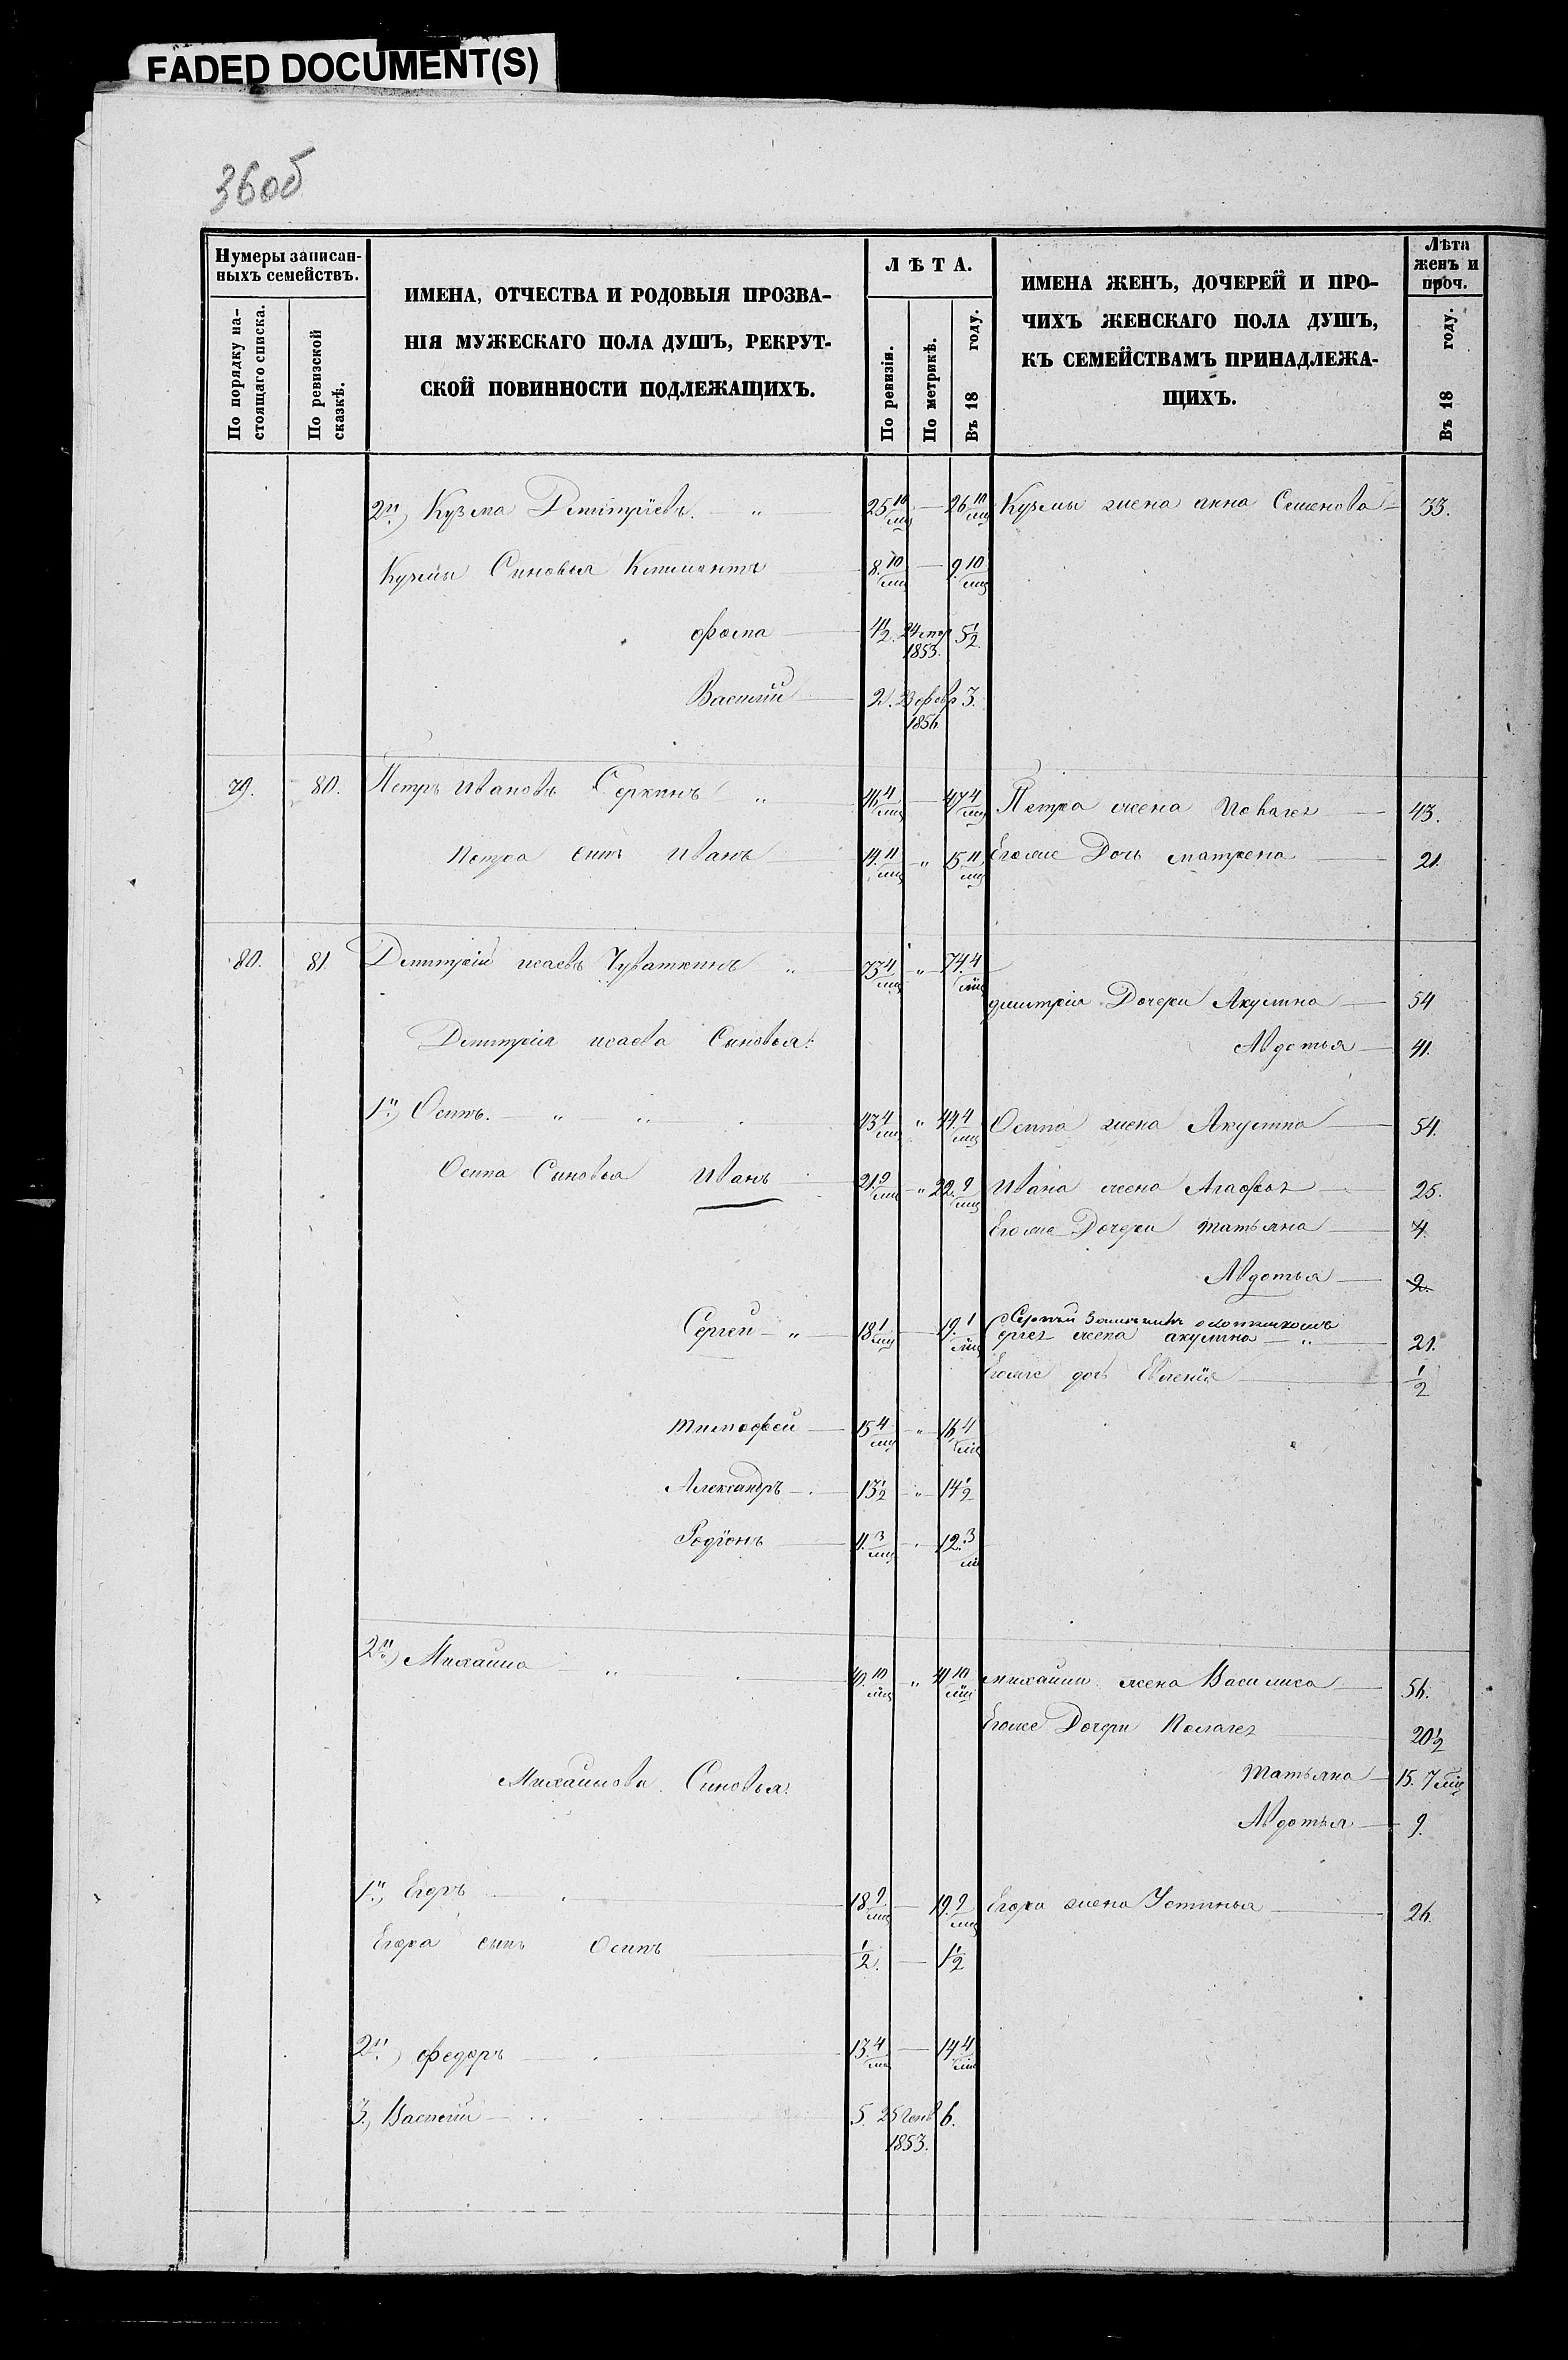 FADED DOCUMENT(S)
36об
Нумеры записан-
ныхъ семействъ.
По порядку на-
стоящаго списка.
По ревизской
сказкѣ.
ИМЕНА, ОТЧЕСТВА И РОДОВЫЯ ПРОЗВА-
НІЯ МУЖЕСКАГО ПОЛА ДУШЪ, РЕКРУТ-
СКОЙ ПОВИННОСТИ ПОДЛЕЖАЩИХЪ.
ЛѢТА.
По ревизіи.
По метрикѣ.
Въ 18 году.
ИМЕНА ЖЕНЪ, ДОЧЕРЕЙ И ПРО-
ЧИХЪ ЖЕНСКАГО ПОЛА ДУШЪ,
КЪ СЕМЕЙСТВАМЪ ПРИНАДЛЕЖА-
ЩИХЪ.
Лѣта
женъ и
проч.
Въ 18 году.
2й) Кузма Дмитріевъ. 25 10/мц 26 10/мц Кузмы жена анна Семенова 33.
Кузмы Сыновья Климентъ 8. 10/мц 9. 10/мц
фома 4 1/2. 24 1853. 5 1/2
Василій 2. февр 1856 3.
79. 80. Петръ Ивановъ Серкинъ 46 4/мц 47 4/мц Петра жена Пелагея 43.
Петра сынъ Иванъ 14. 11/мц 15 11/мц Егоже Дочь матрена 21.
80. 81. Дмитрій исаевъ Чуваткинъ 73 4/мц 74. 4/мц
дмитрія Дочери Акулина 54
Дмитрія исаева Сыновья: Авдотья 41.
1й) Осипъ. 43 4/мц 44. 4/мц Осипа жена Акулина 54.
Осипа Сыновья Иванъ 21. 9/мц 22. 9/мц Ивана жена Агафья 25.
Егоже Дочери татьяна 4.
Авдотья 2.
Сергей 18 1/мц 19. 1/мц Сергей
Сергея жена акулина 21.
Егоже дочь 1/2
тимофей 15 4/мц 16 4/мц
Александръ 13 1/2 14 1/2
Родіонъ 11. 3/мц 12. 3/мц
2й) Михаила 40. 10/мц 41 10/мц михаила жена Василиса 56.
Егоже Дочери Пелагея 20 1/2
Михаилова Сыновья: татьяна 15. 7 мц
Авдотья 9.
1й) Егоръ 18 9/мц 19. 9/мц Егора жена Устинья 26.
Егора сынъ Осипъ 1/2. 1 1/2
2й) федоръ 13. 4/мц 14 4/мц
3.) Василій 5. 25 Генв 6.
1853.